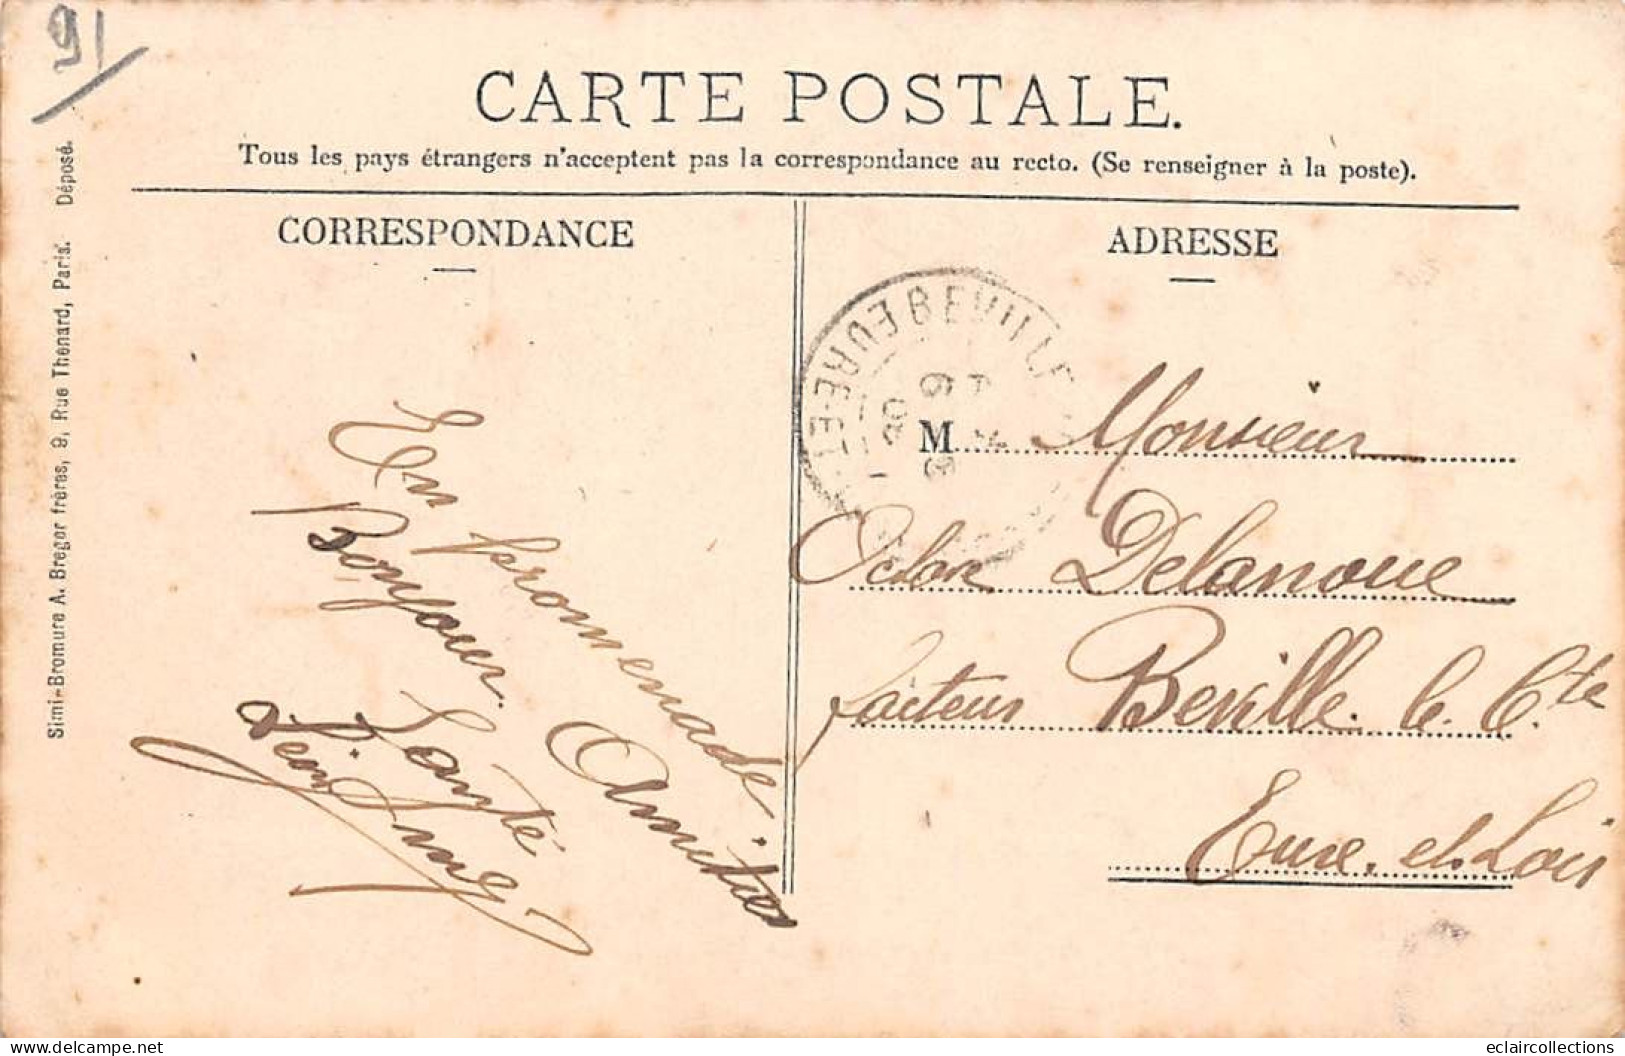 91
CARTE POSTALE.
Tous les pays étrangers n'acceptent pas la correspondance au recto. (Se renseigner à la poste).
CORRESPONDANCE
En promenade
Bonjour. Amitiés
Santé
Léon
ADRESSE
BEVILLE
EURE-ET-
M Monsieur
Octave Delanoue
facteur Beville. le. Cte
Eure. et. Loir
Simi-Bromure A. Breger frères, 9, Rue Thenard, Paris. Déposé.
delcampe.net
eclaircollections